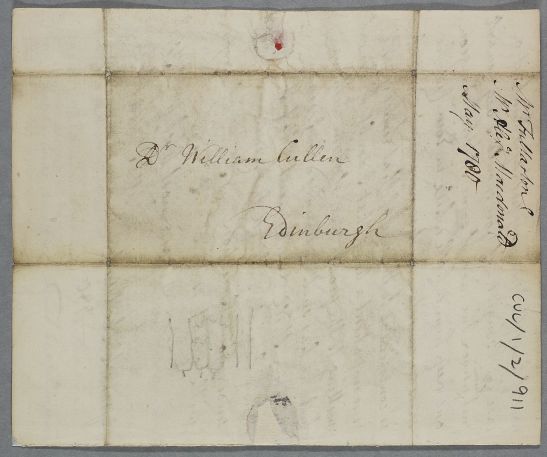 Dr William Cullen
Edinburgh
Mr Fullarton &
Mr Alexr Macdonald
May 1780
CUL/1/2/911